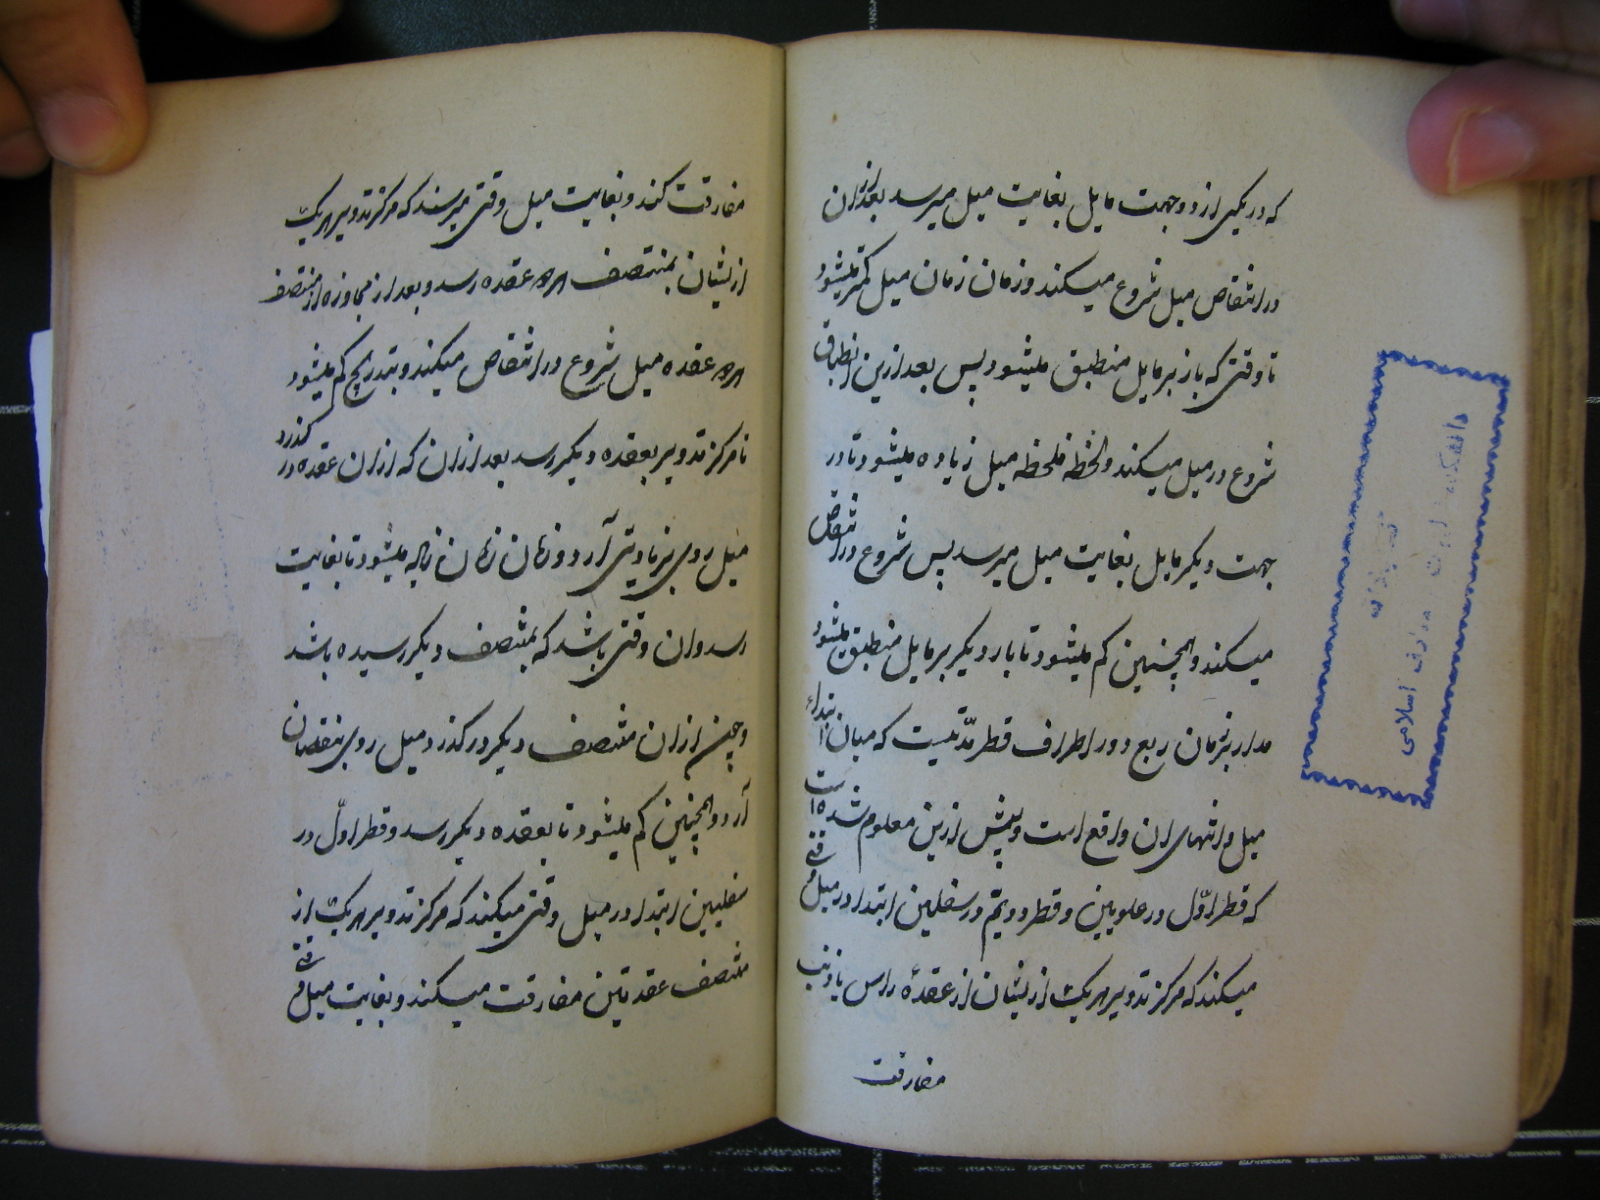 که در یکی از دو جهت مایل بغایت میل میرسد بعد از ان
در انتقاص میل شروع میکند و زمان زمان میل کمتر میشود
تا وقتی که باز بر مایل منطبق میشود پس بعد ازین انطباق
شروع در میل میکند و لحظه فلحظه میل زیاده میشود تا در
جهت دیگر مایل بغایت میل میرسد پس شروع در انتقاص
میکند و همچنین کم میشود تا بار دیگر بر مایل منطبق میشود
مدار بزمان ربع دور اطراف قطر مدتیست که میان ابتداء
میل و انتهای ان واقع است و پیش ازین معلوم شده است
که قطر اوّل در علویین و قطر دویّم در سفلیین ابتدا در میل وقتی
میکند که مرکز تدویر هریک ازیشان از عقدهٔ راس یا ذنب
مفارقت
مفارقت کند و بغایت میل وقتی میرسند که مرکز تدویر هریک
ازیشان بمنتصف هر دو عقده رسد و بعد از مجاوزه از منتصف
هر دو عقده میل شروع در انتقاص میکند و بتدریج کم میشود
تا مرکز تدویر بعقده دیگر رسد بعد از ان که از ان عقده در گذرد
میل روی بزیادتی آرد و زمان زمان زیاده میشود تا بغایت
رسد و ان وقتی باشد که بمنتصف دیگر رسیده باشد
و چون از ان منتصف دیگر در گذرد میل روی بنقصان
آرد و همچنین کم میشود تا بعقده دیگر رسد و قطر اوّل در
سفلیین ابتدا در میل وقتی میکند که مرکز تدویر هریک از
منتصف عقدتین مفارقت میکند و بغایت میل وقتی
معارف اسلامی